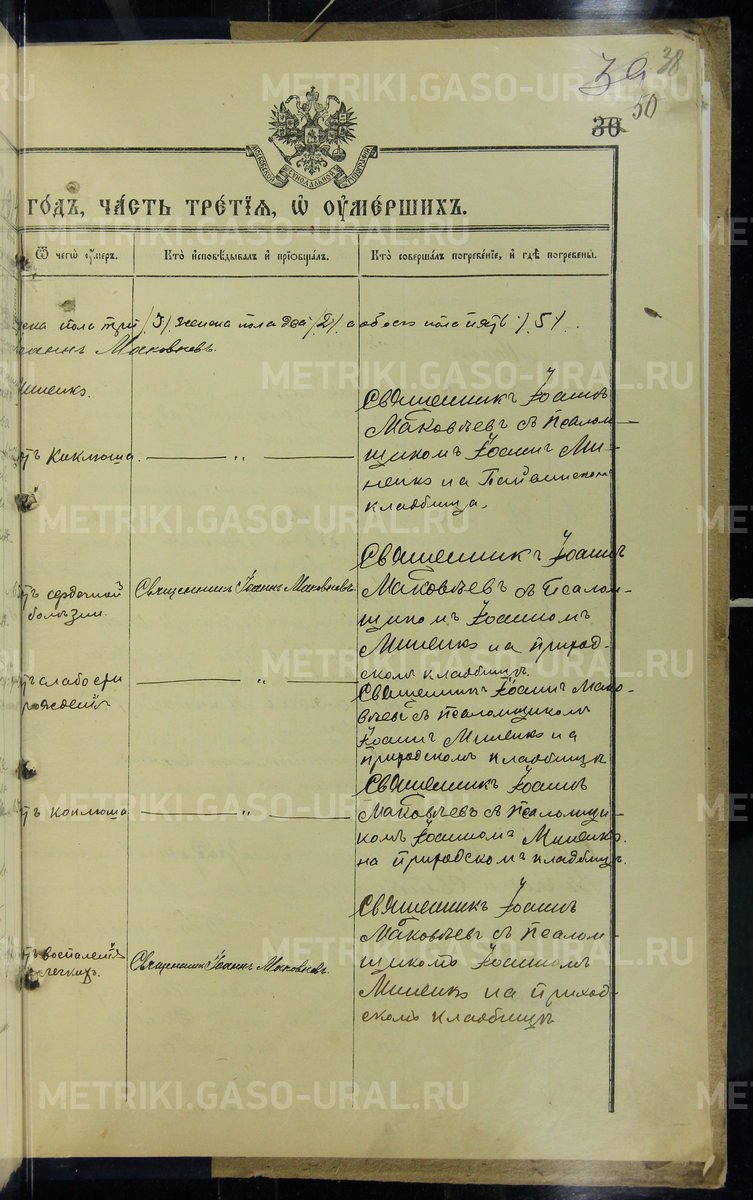 38
50
30
МОСКОВСКОЙ СѴНОДАЛЬНОЙ ТИПОГРАФІИ
ГОДЪ, ЧАСТЬ ТРЕТІЯ, Ѡ ОУМЕРШИХЪ.
Ѿ чегѡ оумеръ.
Кто исповѣдывалъ и пріобщалъ.
Кто совершалъ погребеніе, и гдѣ погребены.
пола три /3/, женска пола два /2/, а обоего пола пять /5/.
Маковѣевъ.
Миненко.
Коклюша. — „ —
Священникъ Іоаннъ
Маковѣевъ съ Псалом-
щикомъ Іоаннъ Ми-
ненко на
кладбища.
сердечной
болѣзни.
Священникъ Іоаннъ Маковѣевъ
Священникъ Іоаннъ
Маковѣевъ съ Псалом-
щикомъ Іоанномъ
Миненко на приход-
скомъ кладбищѣ.
слабости
рожденія
— „ —
Священникъ Іоаннъ Мако-
вѣевъ съ псаломщикомъ
Іоаннъ Миненко на
приходскомъ кладбищѣ
коклюша — „ —
Священникъ Іоаннъ
Маковѣевъ съ Псаломщи-
комъ Іоанномъ Миненко
на приходскомъ кладбищѣ.
воспаленія
легкихъ.
Священникъ Іоаннъ Маковѣевъ.
Священникъ Іоаннъ
Маковѣевъ съ Псалом-
щикомъ Іоанномъ
Миненко на приход-
скомъ кладбищѣ
METRIKI.GASO-URAL.RU